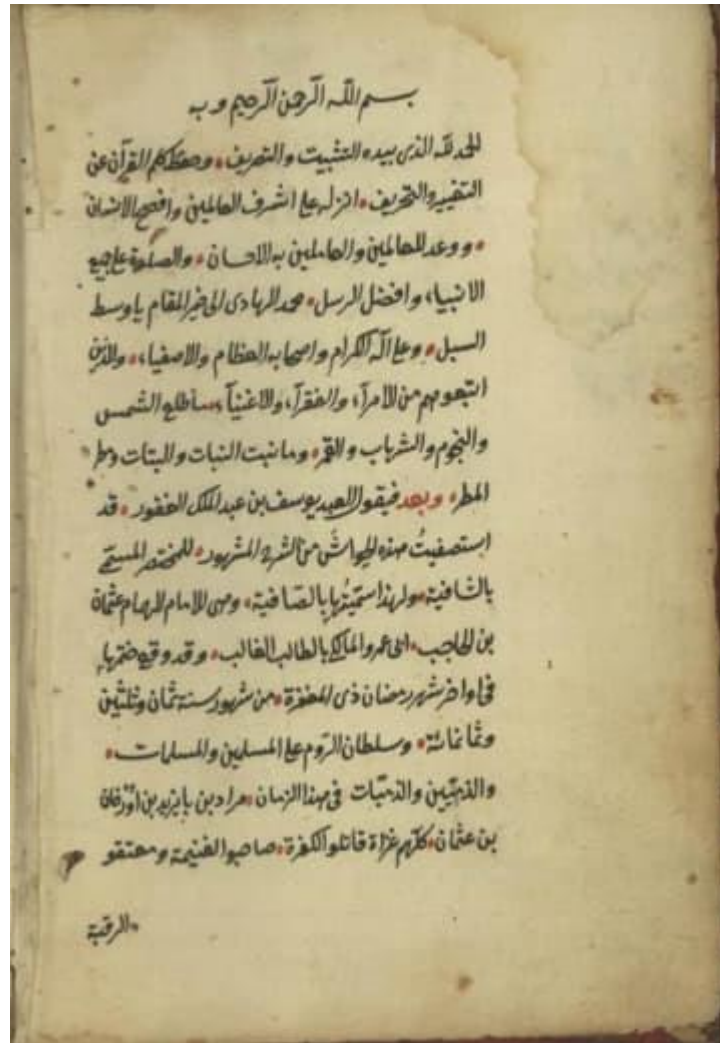 بسم الله الرحمن الرحيم وبه
الحمد لله الذى بيده التثبيت والتصريف وحفظ كلم القرآن عن
التغيير والتحريف انزله على اشرف العالمين وافصح الانسان
ووعد للعالمين والعاملين به الاحسان والصلوة على جميع
الانبياء وافضل الرسل محمد الهادى الى خير المقام باوسط
السبل وعلى آله الكرام واصحابه العظام والاصفياء والذين
اتبعوهم من الامرآء والفقرآء والاغنيآء ما طلع الشمس
والنجوم والشهاب والقمر وما نبت النبات والبتات
المطر وبعد فيقول العبد يوسف بن عبد الملك الغفور قد
استصفيتُ هذه الحواشى من الشروح المشهور للمختصر المسمى
بالشافية ولهذا سمّيتُها بالصّافية وهى للامام الهمام عثمان
بن الحاجب ابى عمرو المالكى بالطالب الغالب وقد وقع ختمها
فى اواخر شهر رمضان ذى المغفرة من شهور سنة ثمان وثلثين
وثمانمائة وسلطان الرّوم على المسلمين والمسلمات
والذمّيين والذمّيات فى هذا الزمان مراد بن بايزيد بن اورخان
بن عثمان كلّهم غزاة قاتلوا الكفرة صاحبوا الغنيمة ومعتقو
الرقبة